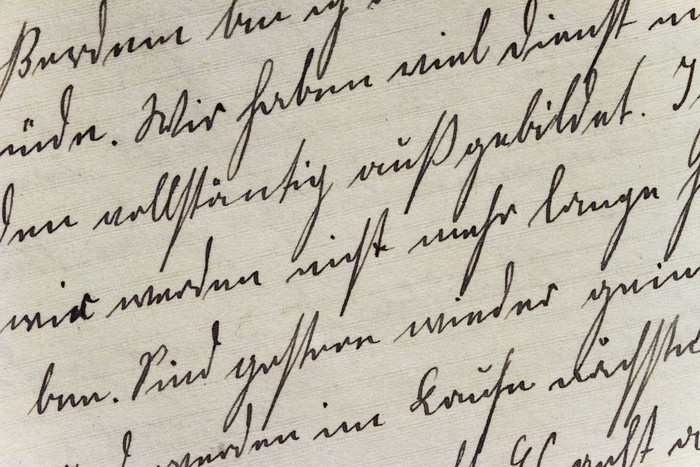 ßerdem bin ich
müde. Wir haben viel dienst
den vollständig außgebildet. I
wir werden nicht mehr lange h
ben. Sind gestern wieder geim
werden im Laufe nächste
Es geht